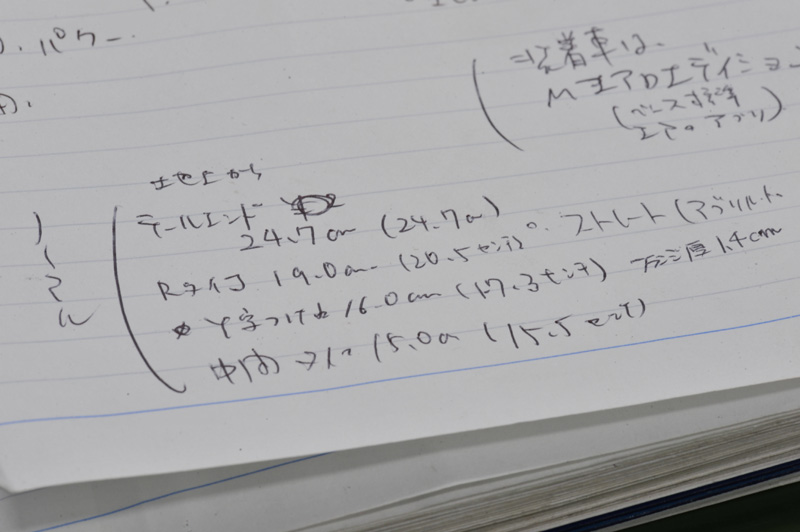 パワー.
装着車は、
Mエアロエディション
(ベース標準
エアロアプリ)
土地上から
テールエンド
24.7cm (24.7cm)
Rタイコ 19.0cm (20.5センチ)。ストレート (マフリルト、
Y字つけ 16.0cm (17.3センチ) フランジ厚1.4cm
中間タイコ 15.0cm (15.5センチ)